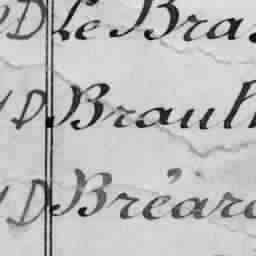 D Le Bras
D Brault
D Bréard